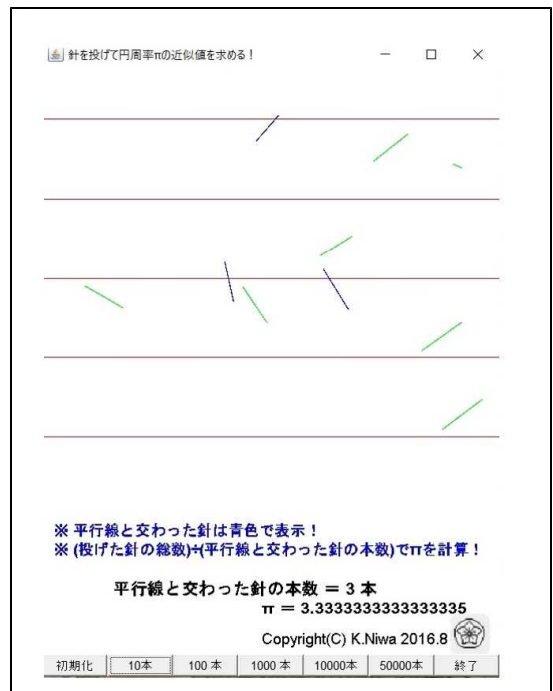 針を投げて円周率πの近似値を求める!
※ 平行線と交わった針は青色で表示!
※ (投げた針の総数)÷(平行線と交わった針の本数)でπを計算!
平行線と交わった針の本数 = 3 本
π = 3.3333333333333335
Copyright(C) K.Niwa 2016.8
初期化 10本 100 本 1000 本 10000本 50000本 終了